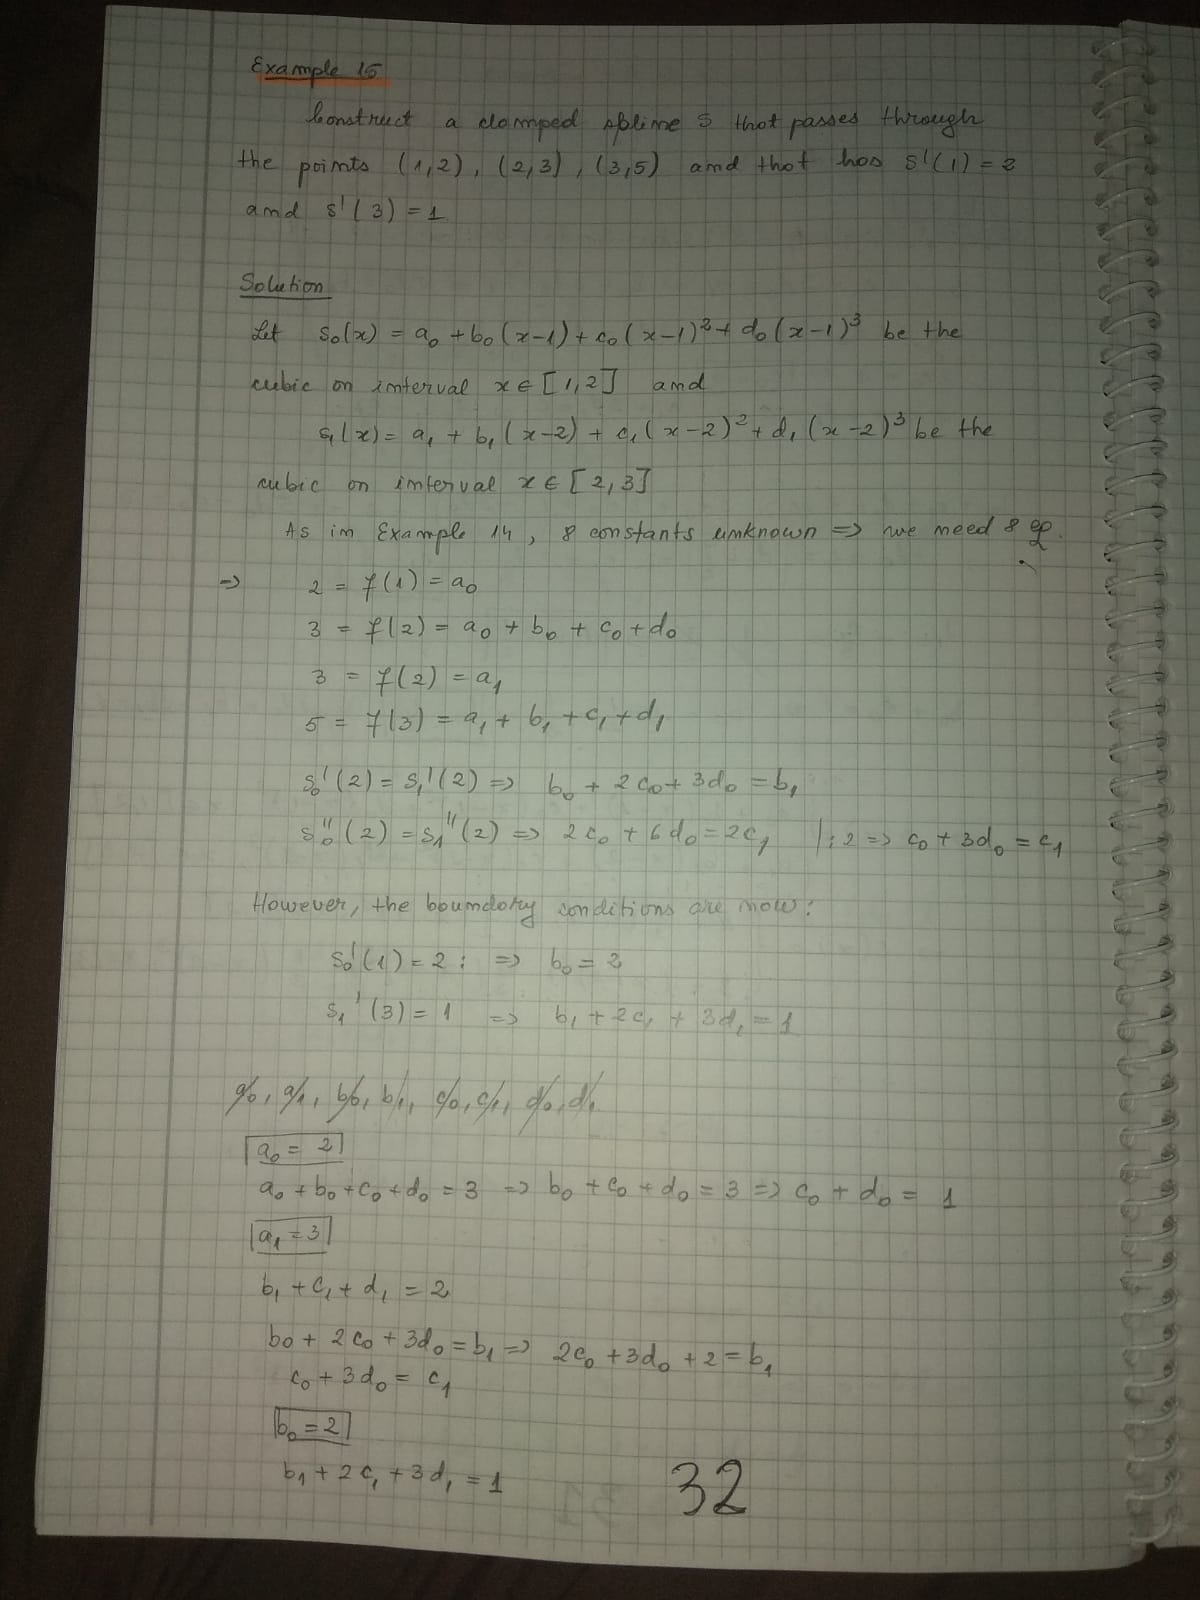 Example 15
Construct a clamped spline s that passes through
the points (1,2), (2,3), (3,5) and that has s'(1) = 2
and s'(3) = 1
Solution
Let s₀(x) = a₀ + b₀(x-1) + c₀(x-1)² + d₀(x-1)³ be the
cubic on interval x ∈ [1,2] and
s₁(x) = a₁ + b₁(x-2) + c₁(x-2)² + d₁(x-2)³ be the
cubic on interval x ∈ [2,3]
As in Example 14, 8 constants unknown => we need 8 eq.
=> 2 = f(1) = a₀
3 = f(2) = a₀ + b₀ + c₀ + d₀
3 = f(2) = a₁
5 = f(3) = a₁ + b₁ + c₁ + d₁
s₀'(2) = s₁'(2) => b₀ + 2c₀ + 3d₀ = b₁
s₀''(2) = s₁''(2) => 2c₀ + 6d₀ = 2c₁ |:2 => c₀ + 3d₀ = c₁
However, the boundary conditions are now:
s₀'(1) = 2 : => b₀ = 2
s₁'(3) = 1 => b₁ + 2c₁ + 3d₁ = 1
a₀, a₁, b₀, b₁, c₀, c₁, d₀, d₁
a₀ = 2
a₀ + b₀ + c₀ + d₀ = 3 => b₀ + c₀ + d₀ = 3 => c₀ + d₀ = 1
a₁ = 3
b₁ + c₁ + d₁ = 2
b₀ + 2c₀ + 3d₀ = b₁ => 2c₀ + 3d₀ + 2 = b₁
c₀ + 3d₀ = c₁
b₀ = 2
b₁ + 2c₁ + 3d₁ = 1
32